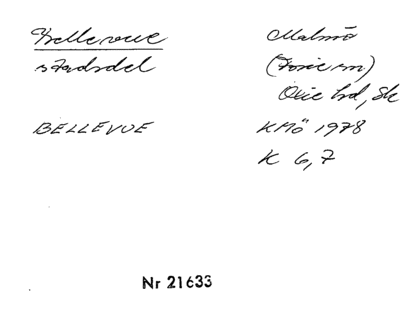 Bellevue Malmö
stadsdel (Fosie sn)
Oxie hd, Sk
BELLEVUE KMö 1978
K 6,7
Nr 21633